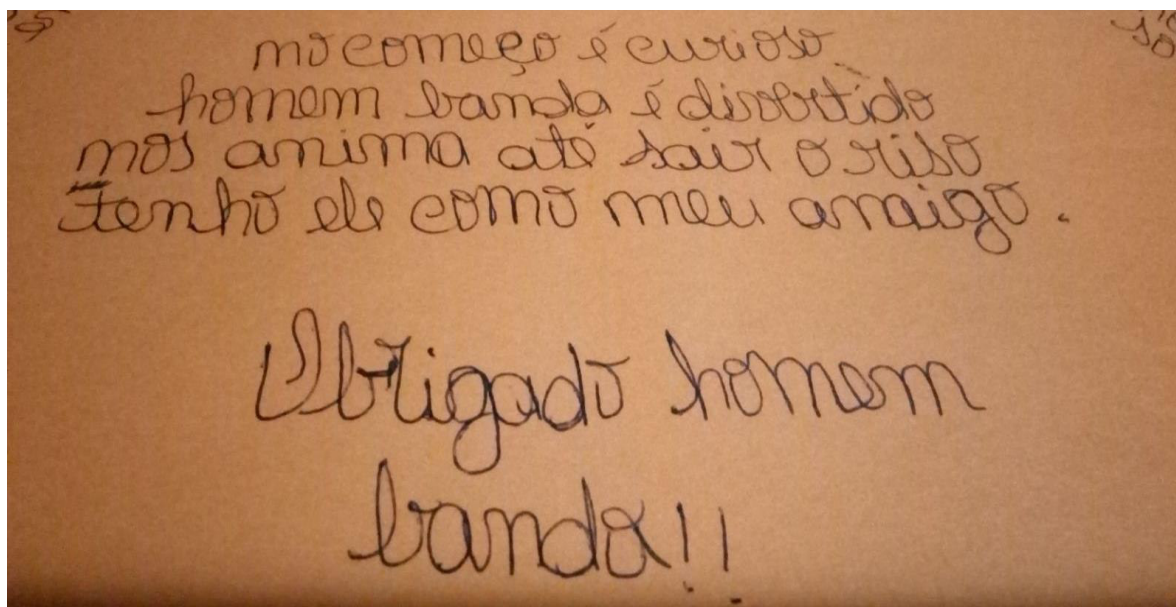 no começo é curioso
homem banda é divertido
nos anima até sair o riso
Tenho ele como meu amaigo.
Obrigado homem
banda!!